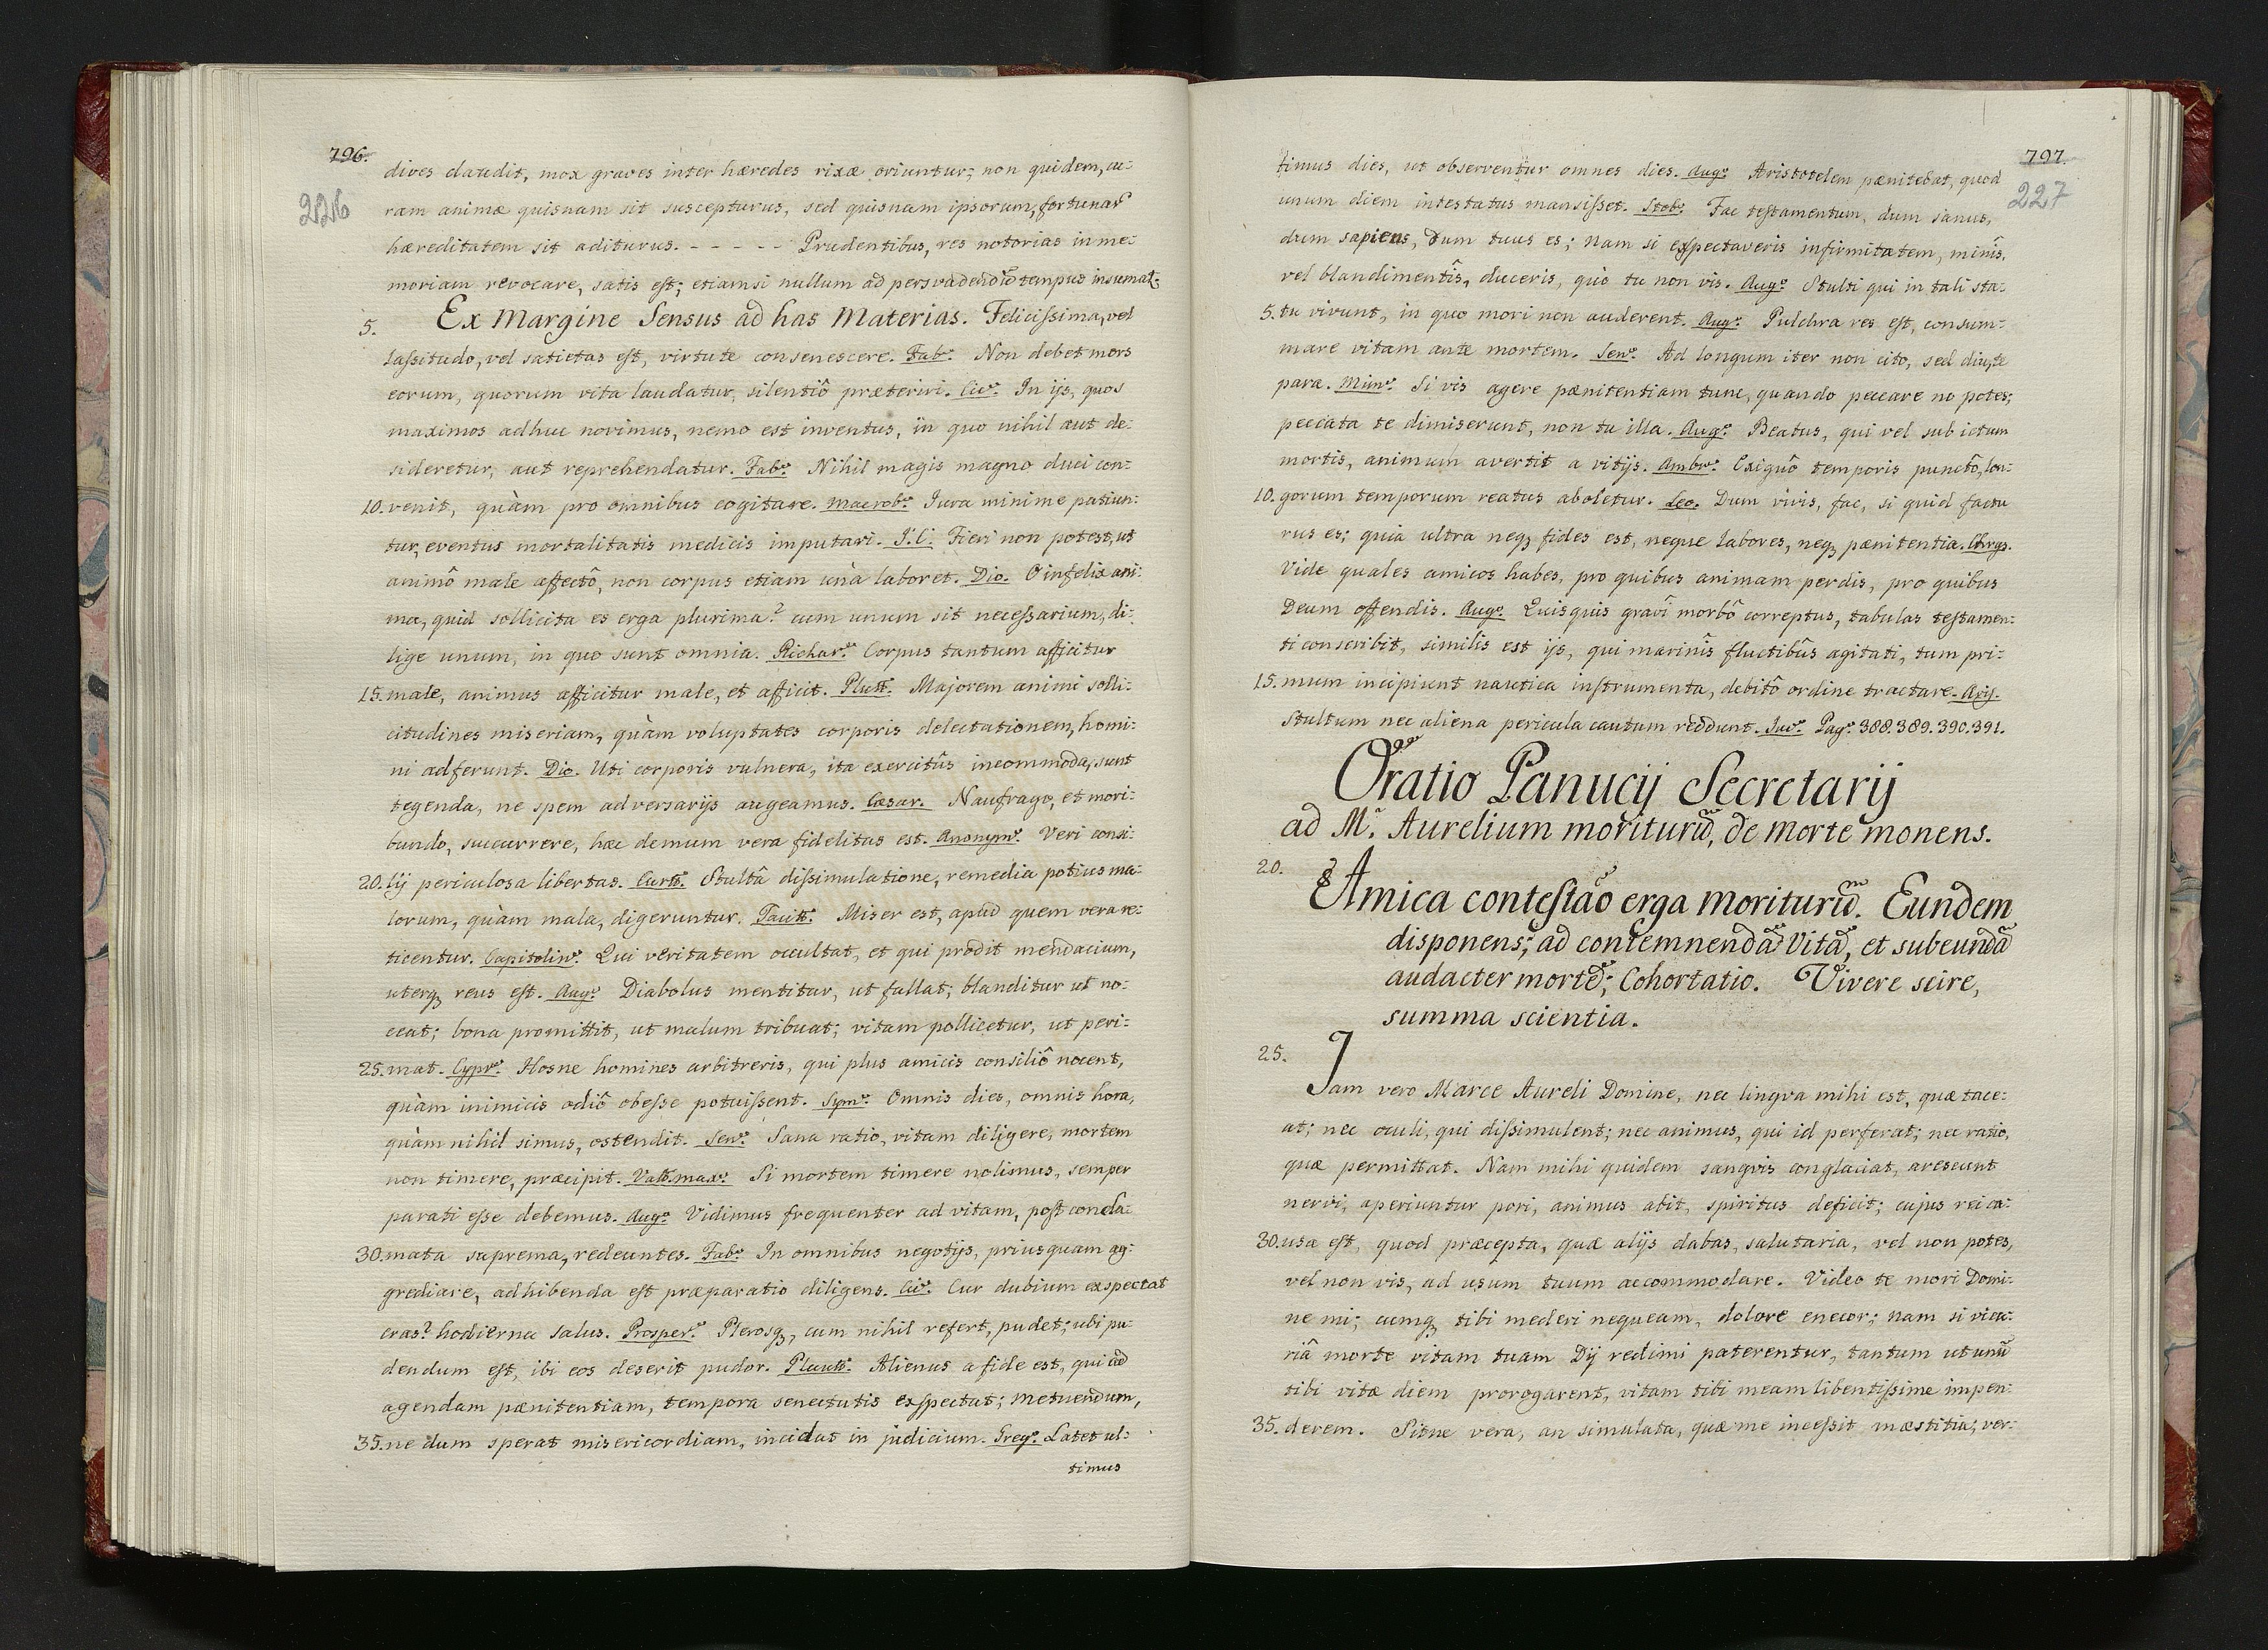 796.
226
dives claudit, mox graves inter hæredes rixæ oriuntur; non quidem, cu-
ram animæ quisnam sit suscepturus, sed quisnam ipsorum, fortunas
hæreditatem sit aditurus. - - - - - Prudentibus, res notorias in me-
moriam revocare, satis est; etiamsi nullum ad persvadendũ tempus insumat.
5. Ex Margine Sensus ad has Materias. Felicissima, vel
lassitudo, vel satietas est, virtute consenescere. Fab. Non debet mors
eorum, quorum vita laudatur, silentiô præteriri. Cic. In ijs, quos
maximos adhuc novimus, nemo est inventus, in quo nihil aut de-
sideretur, aut reprehendatur. Fab. Nihil magis magno duci con-
10. venit, quàm pro omnibus cogitare. Macrob. Iura minime patiun-
tur, eventus mortalitatis medicis imputari. I.C. Fieri non potest, ut
animô male affectô, non corpus etiam unà laboret. Dio. O infelix ani-
ma, quid sollicita es erga plurima? cum unum sit necessarium, di-
lige unum, in quo sunt omnia. Richar. Corpus tantum afficitur
15. male, animus afficitur male, et afficit. Plutt. Majorem animi solli-
citudines miseriam, quàm voluptates corporis delectationem, homi-
ni adferunt. Dio. Uti corporis vulnera, ita exercitûs incommoda, sunt
tegenda, ne spem adversarijs augeamus. Cæsar. Naufrago, et mori-
bundo, succurrere, hæc demum vera fidelitas est. Anonym. Veri consi-
20. lij periculosa libertas. Curtt. Stultâ dissimulatione, remedia potius ma-
lorum, quàm mala, digeruntur. Tacitt. Miser est, apud quem vera re-
ticentur. Capitolin. Qui veritatem occultat, et qui prodit mendacium,
uterq; reus est. Aug. Diabolus mentitur, ut fallat; blanditur ut no-
ceat; bona promittit, ut malum tribuat; vitam pollicetur, ut peri-
25. mat. Cypr. Hosne homines arbitreris, qui plus amicis consiliô nocent,
quàm inimicis odiô obesse potuissent. Sym. Omnis dies, omnis hora,
quàm nihil simus, ostendit. Sen. Sana ratio, vitam diligere, mortem
non timere, præcipit. Vall. max. Si mortem timere nolimus, semper
parati esse debemus. Aug. Vidimus frequenter ad vitam, post concla-
30. mata suprema, redeuntes. Fab. In omnibus negotijs, priusquam ag-
grediare, adhibenda est præparatio diligens. Cic. Cur dubium expectat
cras? hodierna salus. Prosper. Plerosq; cum nihil refert, pudet; ubi pu-
dendum est, ibi eos deserit pudor. Plautt. Alienus a fide est, qui ad
agendam pænitentiam, tempora senectutis exspectat; metuendum,
35. ne dum sperat misericordiam, incidat in judicium. Greg. Latet ul-
timus
797.
227
timus dies, ut observentur omnes dies. Aug. Aristotelem pænitebat, quod
unum diem intestatus mansisset. Stob. Fac testamentum, dum sanus,
dum sapiens, dum tuus es; nam si exspectaveris infirmitatem, minîs,
vel blandimentîs, duceris, quò tu non vis. Aug. Stulti qui in tali sta-
5. tu vivunt, in quo mori non auderent. Aug. Pulchra res est, consum-
mare vitam ante mortem. Sen. Ad longum iter non cito, sed diu, te
para. Mim. Si vis agere pænitentiam tunc, quando peccare no potes;
peccata te dimiserunt, non tu illa. Aug. Beatus, qui vel sub ictum
mortis, animum avertit a vitijs. Ambr. Exiguô temporis punctô, lon-
10. gorum temporum reatus aboletur. Leo. Dum vivis, fac, si quid factu
rus es; quia ultra neq; fides est, neque labores, neq; pænitentia. Chrys.
Vide quales amicos habes, pro quibus animam perdis, pro quibus
Deum offendis. Aug. Quisquis gravî morbô correptus, tabulas testamen-
ti conscribit, similis est ijs, qui marinîs fluctibûs agitati, tum pri-
15. mum incipiunt nautica instrumenta, debitô ordine tractare. Axij.
Stultum nec aliena pericula cautum reddunt. Juv. Pag. 388. 389. 390. 391.
Oratio Panucij Secretarij
ad M. Aurelium moriturũ, de morte monens.
20. Amica contestaõ erga moriturũ. Eundem
disponens; ad contemnendã Vitã, et subeundã
audacter mortẽ; Cohortatio. Vivere scire,
summa scientia.
25. Jam vero Marce Aureli Domine, nec lingva mihi est, quæ tace-
at; nec oculi, qui dissimulent; nec animus, qui id perferat; nec ratio,
quæ permittat. Nam mihi quidem sangvis conglaciat, arescunt
nervi, aperiuntur pori, animus abit, spiritus deficit; cujus rei ca-
30. usa est, quod præcepta, quæ alijs dabas, salutaria, vel non potes,
vel non vis, ad usum tuum accommodare. Video te mori Domi-
ne mi; cumq; tibi mederi nequeam, dolore enecor; nam si vica-
riâ morte vitam tuam Dij redimi paterentur, tantum ut unũ
tibi vitæ diem prorogarent, vitam tibi meam libentissime impen-
35. derem. Sitne vera, an simulata, quæ me incessit mæstitia, ver-